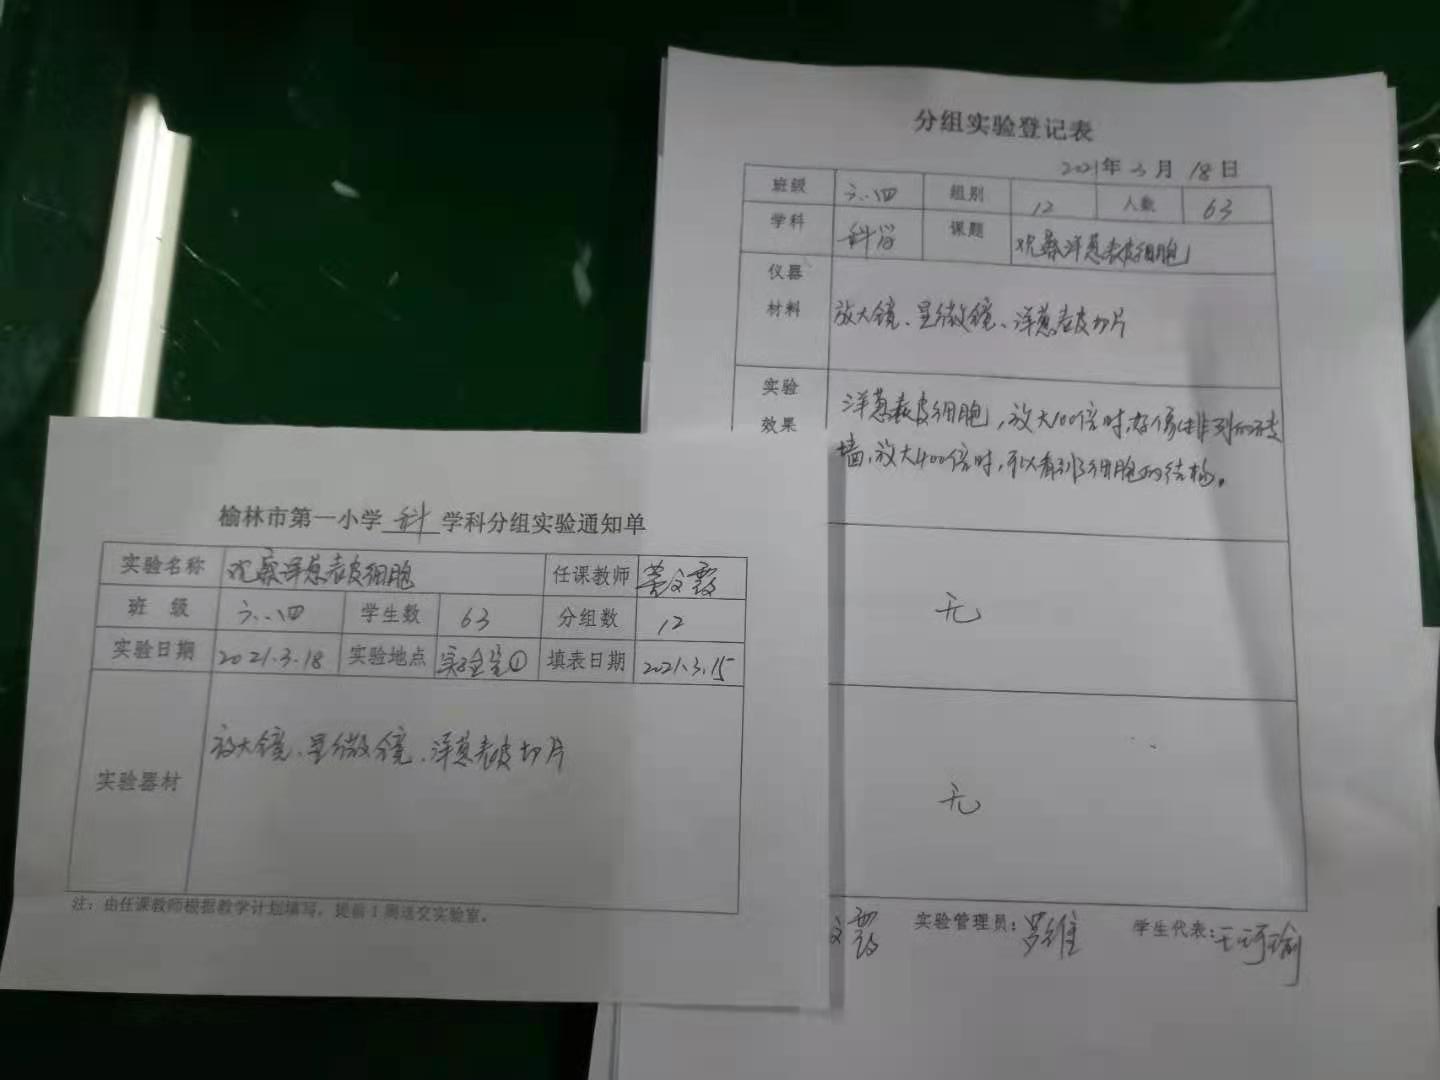 分组实验登记表
2021年3月18日
班级 六.四 组别 12 人数 63
学科 科学 课题 观察洋葱表皮细胞
仪器
材料 放大镜、显微镜、洋葱表皮切片
实验
效果 洋葱表皮细胞,放大100倍时,好像排列的砖
墙,放大400倍时,可以看到细胞的结构。
无
无
文霞 实验管理员:罗维 学生代表:王珂瑜
榆林市第一小学 科 学科分组实验通知单
实验名称 观察洋葱表皮细胞 任课教师 文霞
班 级 六.四 学生数 63 分组数 12
实验日期 2021.3.18 实验地点 实验室① 填表日期 2021.3.15
实验器材 放大镜、显微镜、洋葱表皮切片
注:由任课教师根据教学计划填写,提前1周送交实验室。